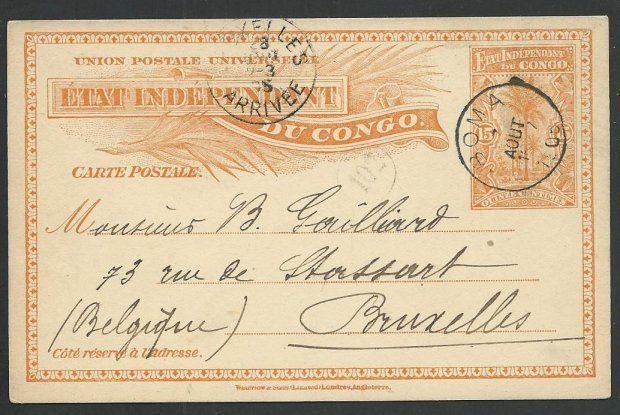 UNION POSTALE UNIVERSELLE
ÉTAT INDÉPENDANT
DU CONGO.
CARTE POSTALE.
ÉTAT INDÉPENDANT
DU CONGO.
15
QUINZE CENTIMES
ARRIVÉE
BOMA
AOÛT
Monsieur B. Gailliard
73 rue de Stassart
(Belgique) Bruxelles
Côté réservé à l'adresse.
WATERLOW & SONS (Limited) Londres, Angleterre.